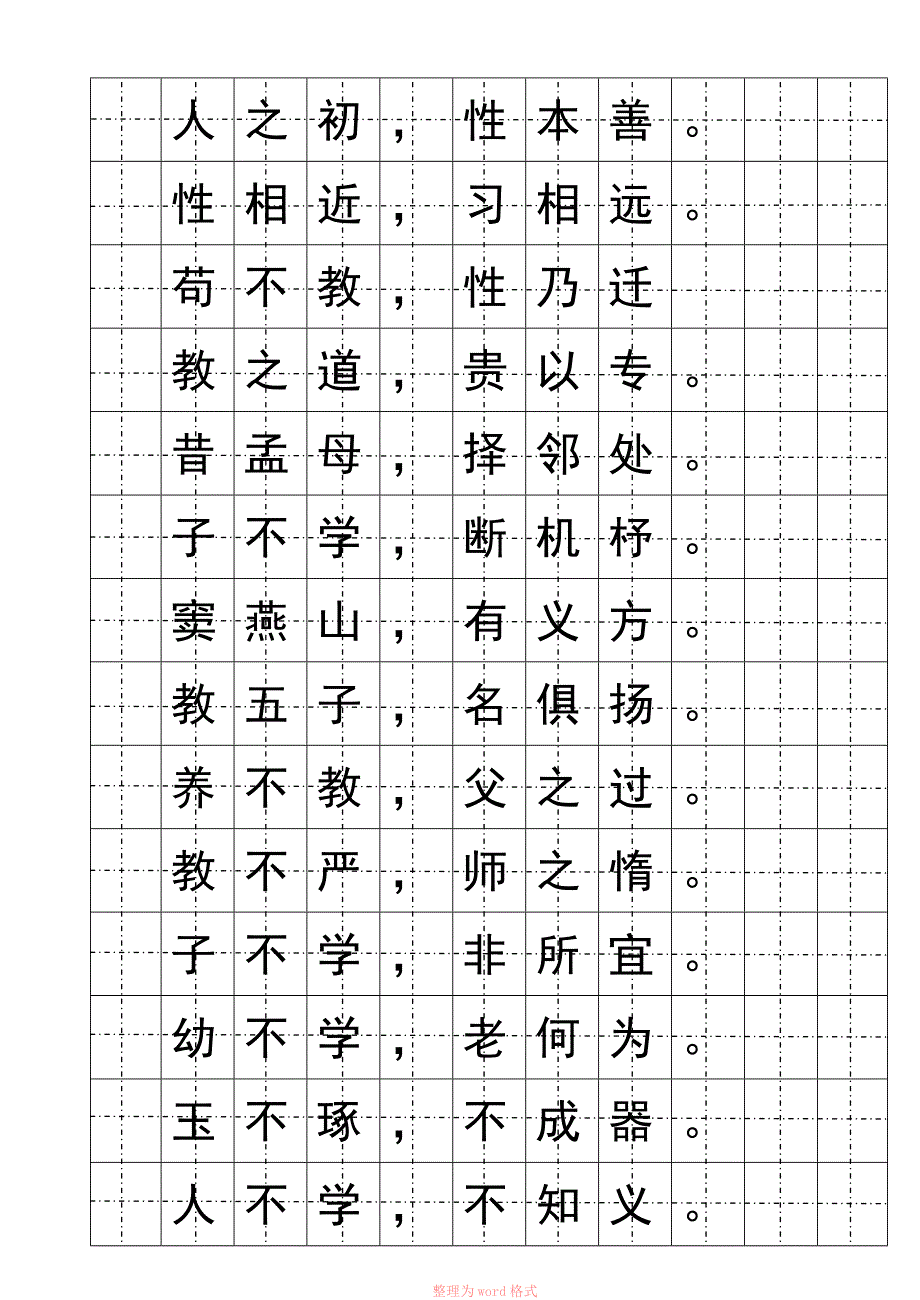 人之初，性本善。
性相近，习相远。
苟不教，性乃迁
教之道，贵以专。
昔孟母，择邻处。
子不学，断机杼。
窦燕山，有义方。
教五子，名俱扬。
养不教，父之过。
教不严，师之惰。
子不学，非所宜。
幼不学，老何为。
玉不琢，不成器。
人不学，不知义。
整理为word格式